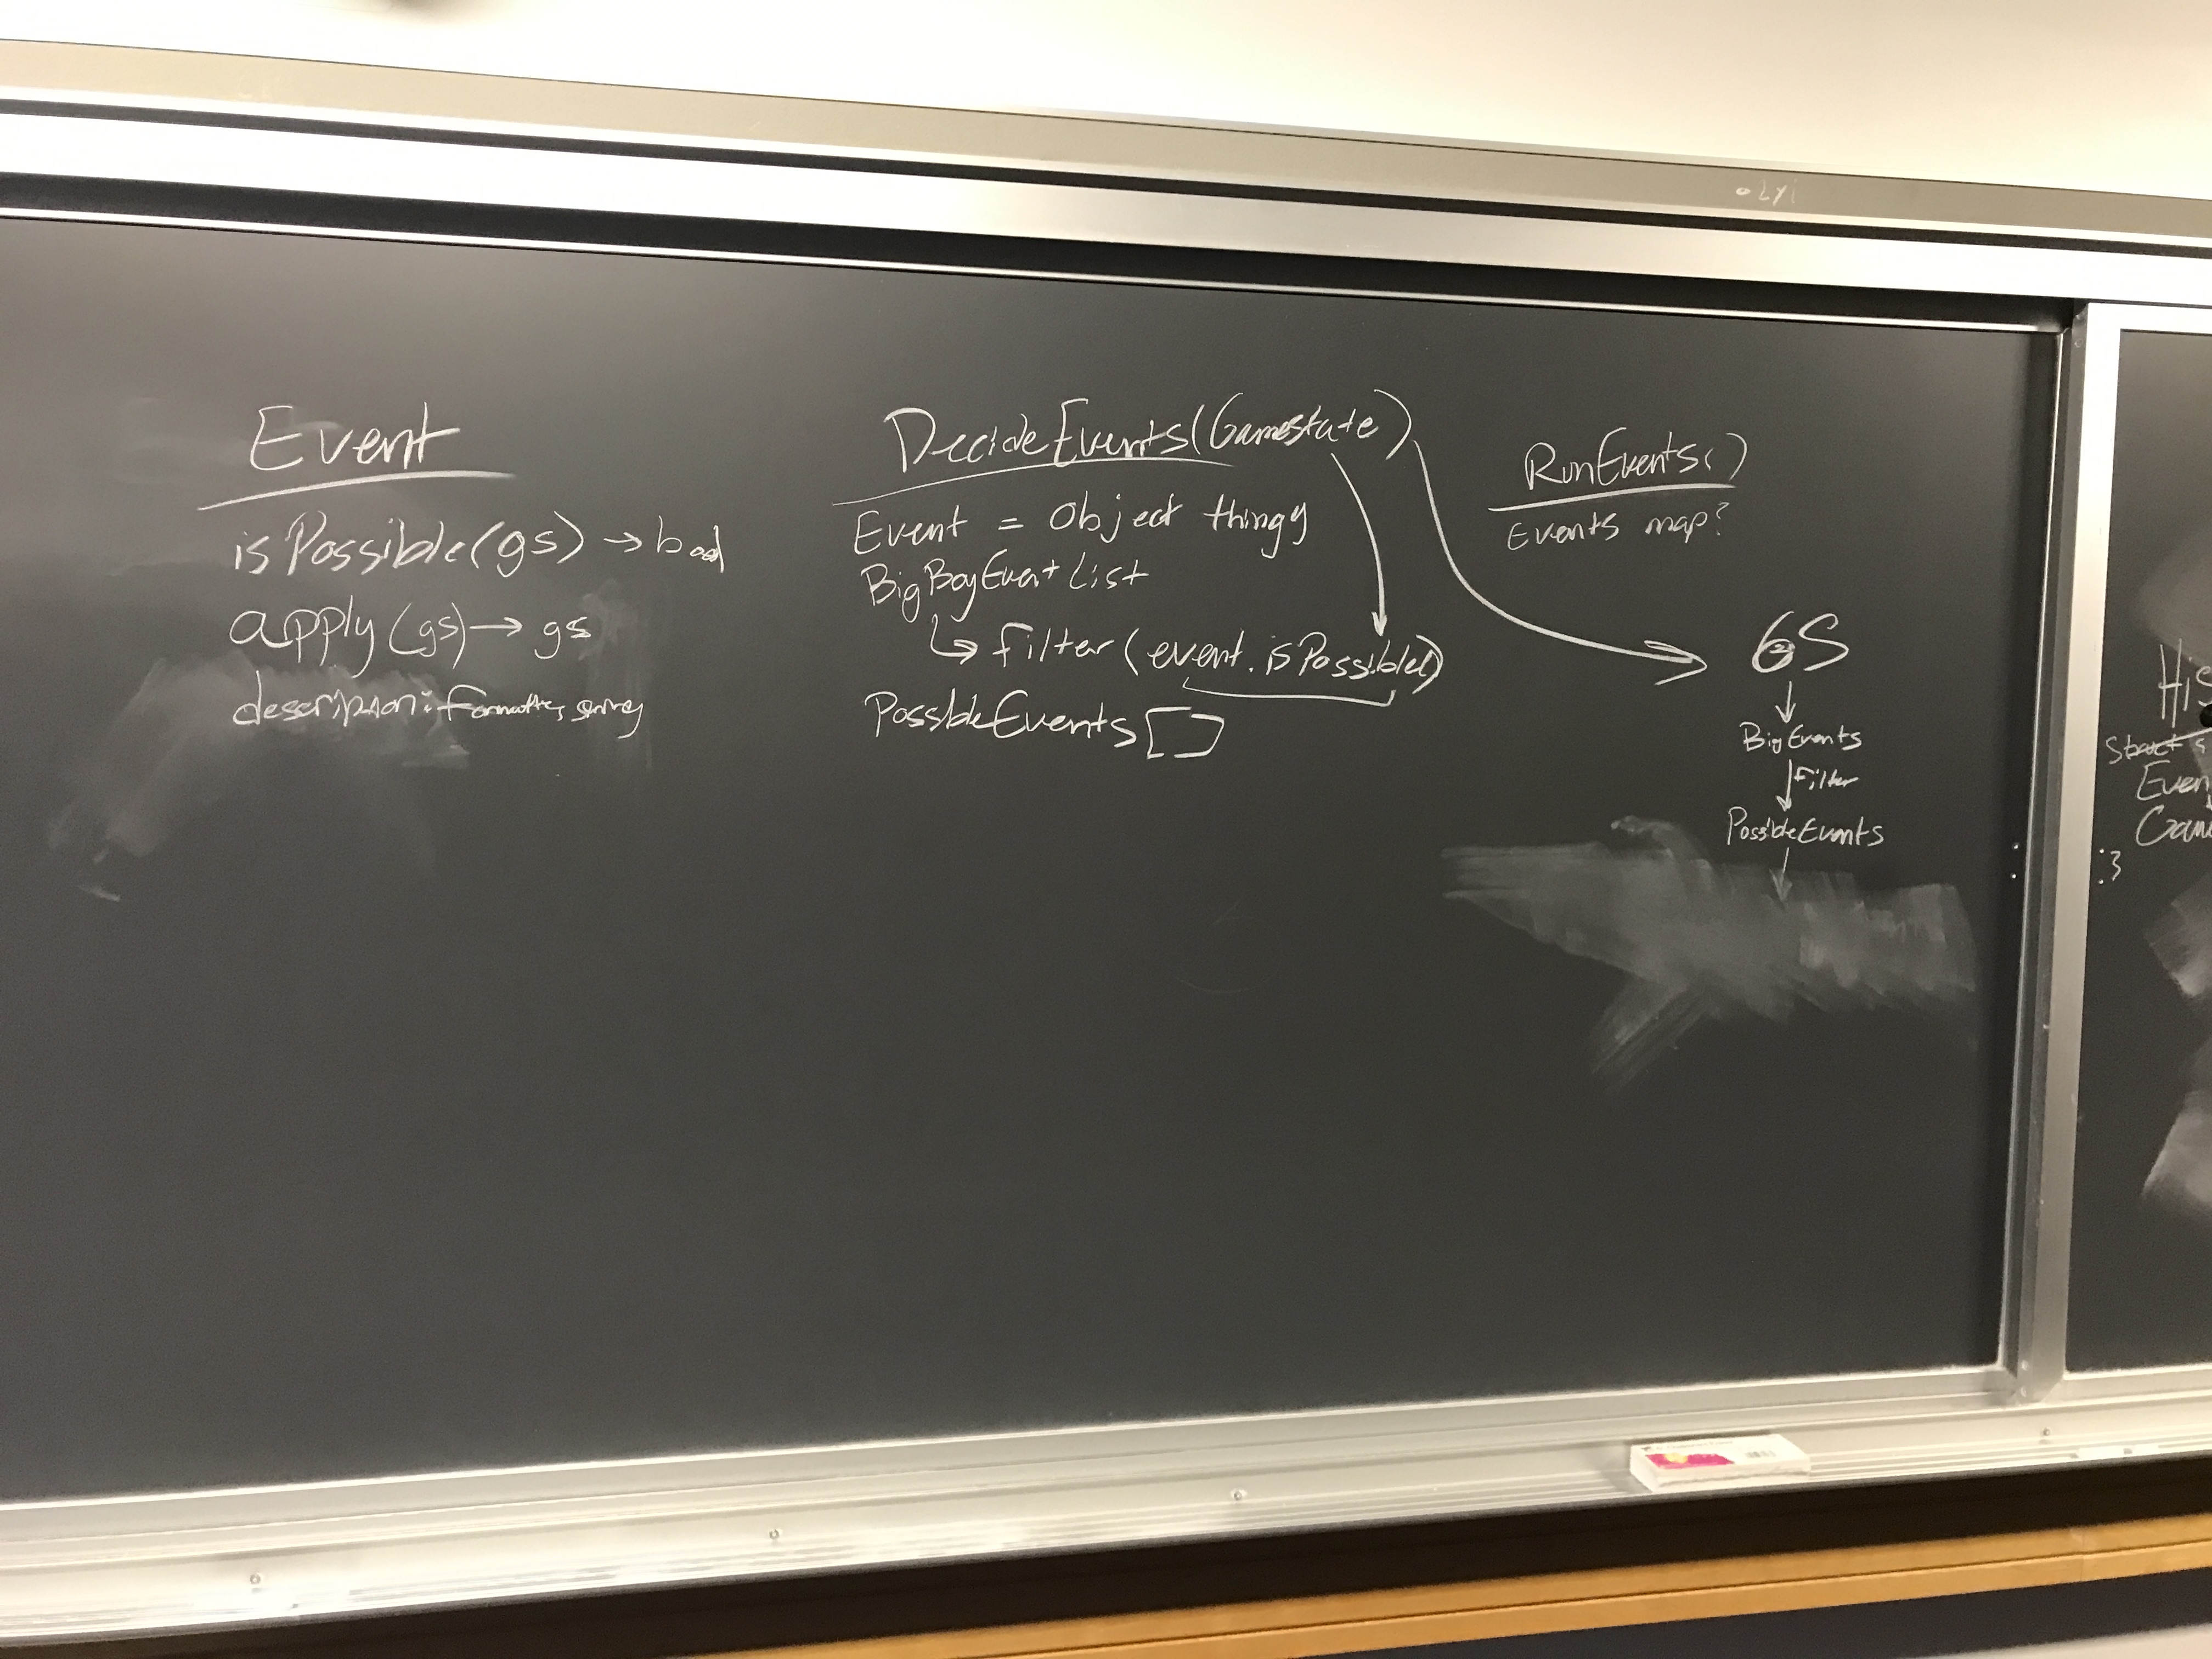 Event
isPossible(gs) → bool
apply(gs) → gs
description: formatted string
DecideEvents(Gamestate)
Event = Object thingy
BigBoyEvent List
↳ filter(event.isPossible)
PossibleEvents[]
RunEvents()
Events map?
GS
↓
BigEvents
↓ Filter
PossibleEvents
↓
His
Start s
Even
Gam
:3